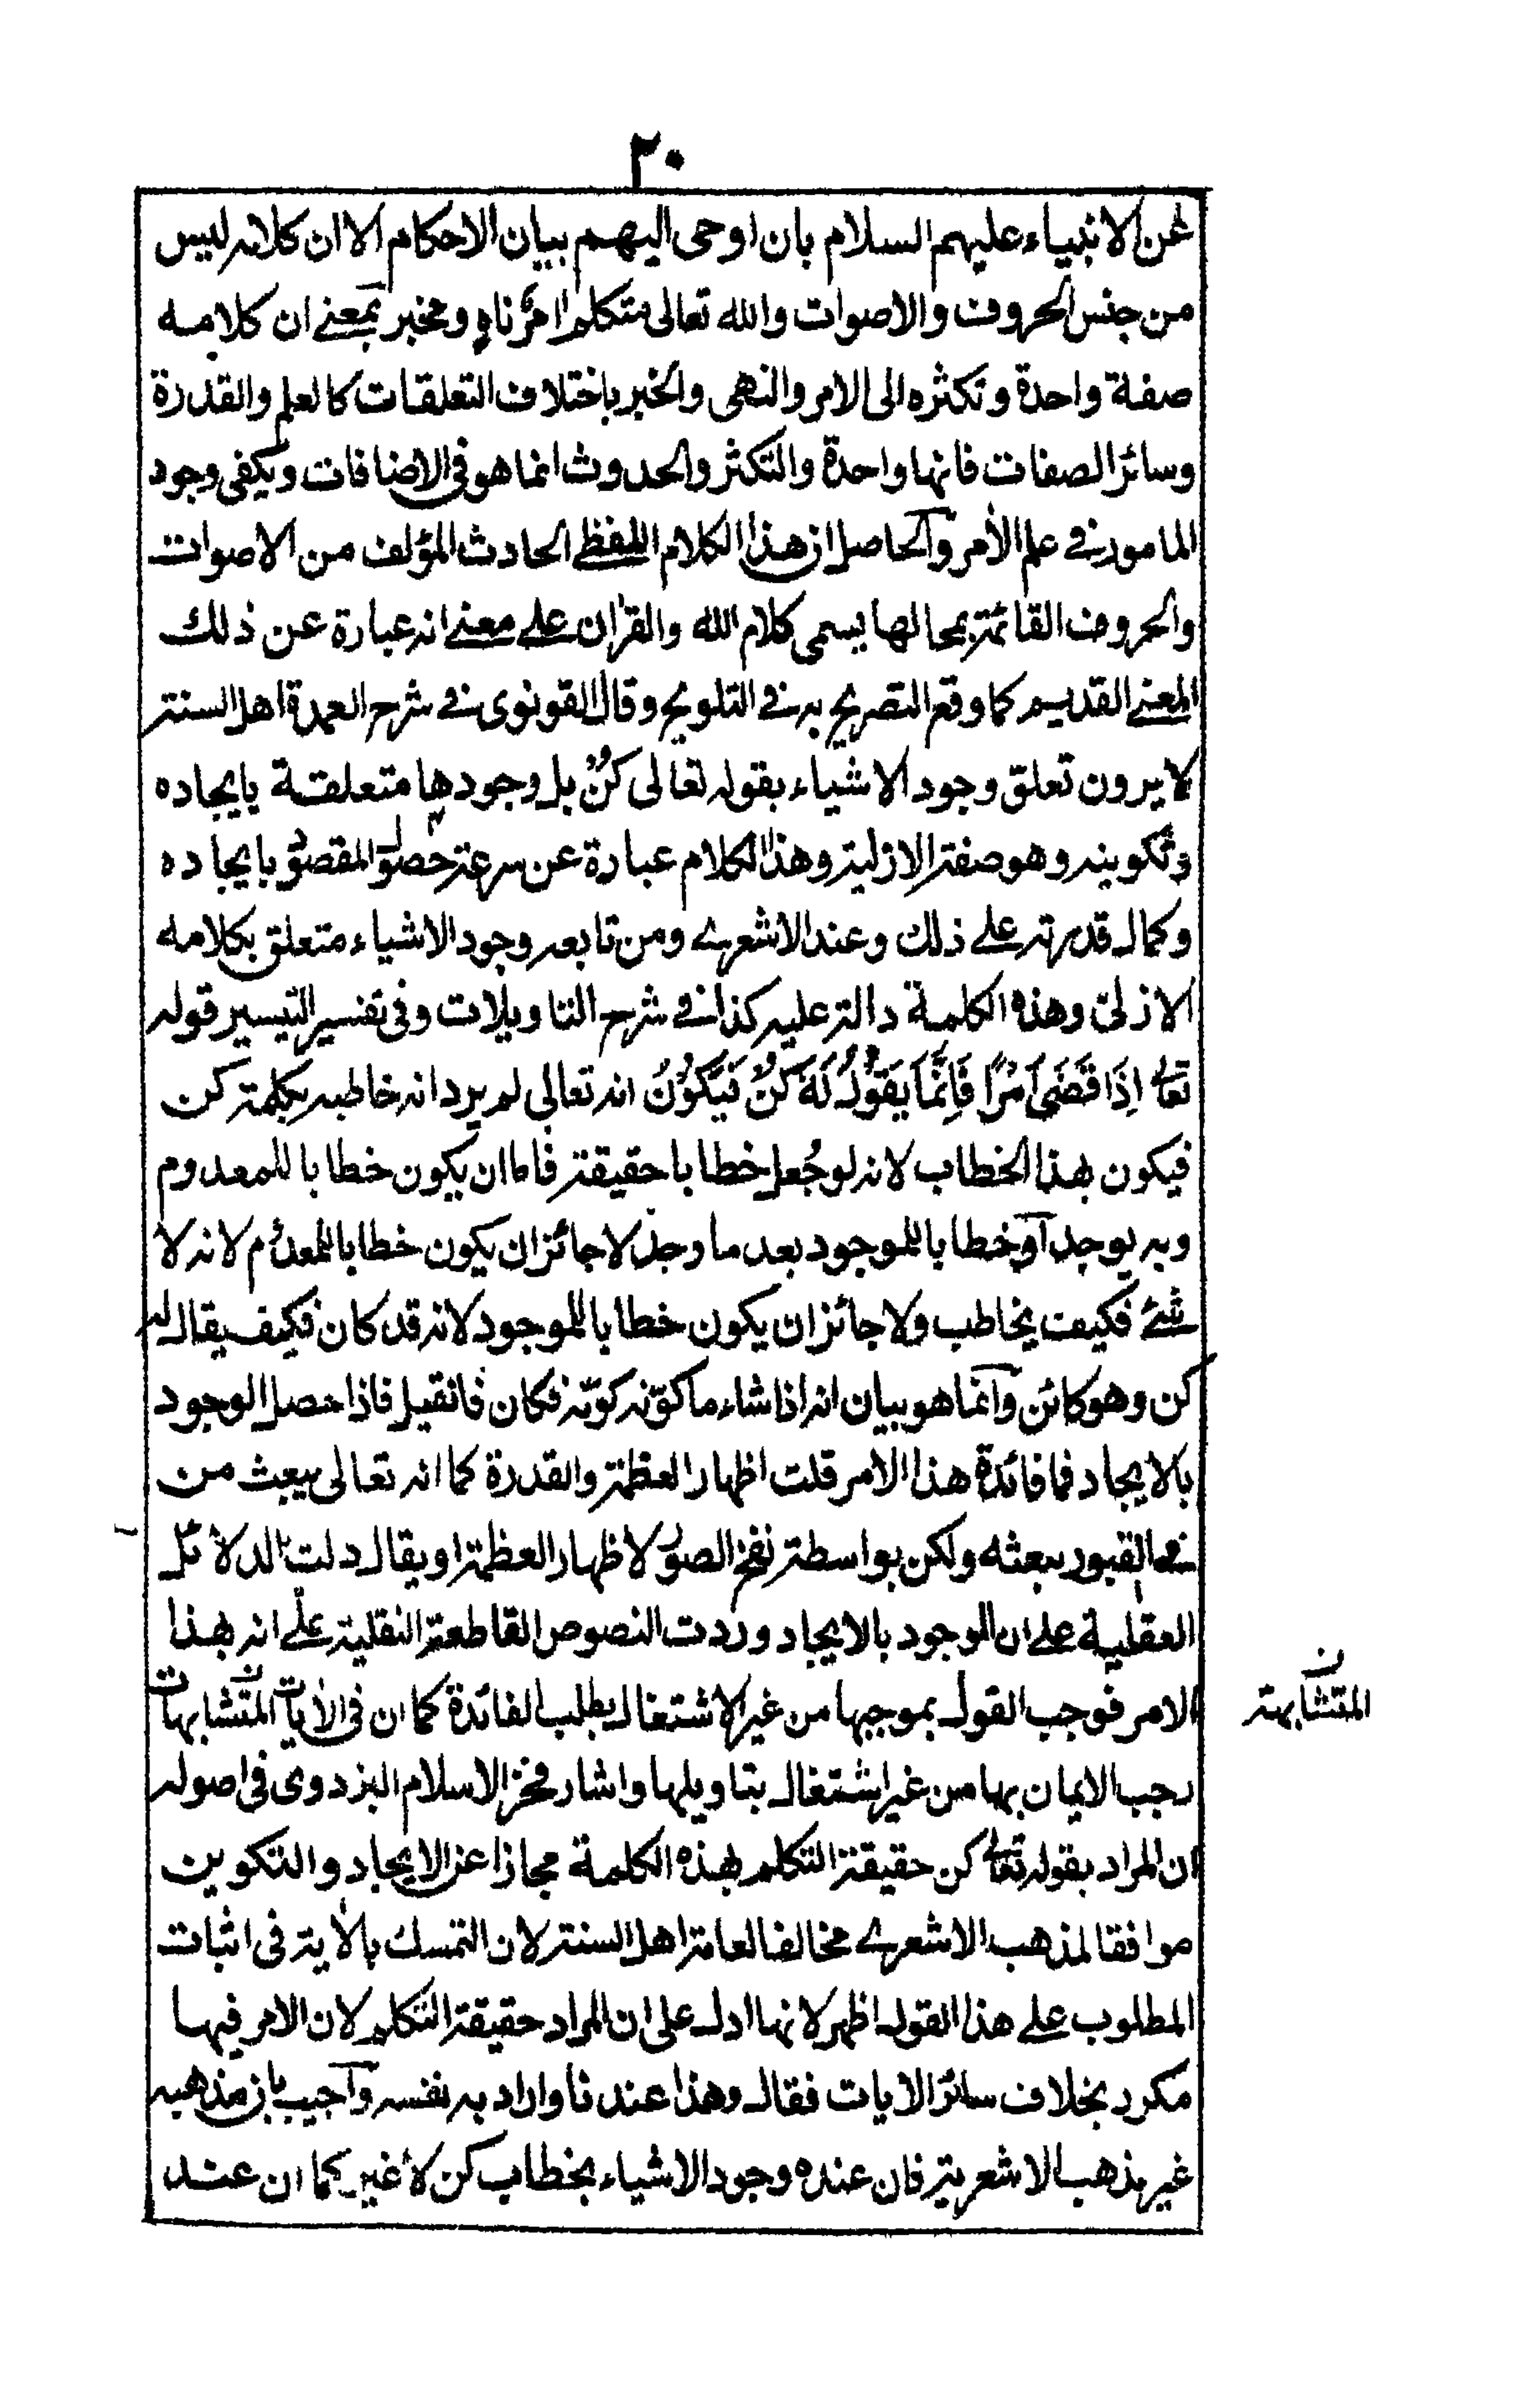 ٢٠
عن الانبياء عليهم السلام بان اوحى اليهم بيان الاحكام الا ان كلامه ليس
من جنس الحروف والاصوات والله تعالى متكلم اٰمرٌ ناهٍ ومخبر بمعنى ان كلامه
صفة واحدة وتكثره الى الامر والنهى والخبر باختلاف التعلقات كالعلم والقدرة
وسائر الصفات فانها واحدة والتكثر والحدوث انما هو فى الاضافات ويكفى وجود
المامور فى علم الأمر والحاصل ان هذا الكلام اللفظى الحادث المؤلف من الاصوات
والحروف القائمة بمحالها يسمى كلام الله والقراٰن على معنى انه عبارة عن ذلك
المعنى القديم كما وقع التصريح به فى التلويح وقال القونوى فى شرح العمدة اهل السنة
لا يرون تعلق وجود الاشياء بقوله تعالى كُنْ بل وجودها متعلقة بايجاده
وتكوينه وهو صفته الازلية وهذا الكلام عبارة عن سرعة حصول المقصود بايجاده
وكمال قدرته على ذلك وعند الاشعرى ومن تابعه وجود الاشياء متعلق بكلامه
الازلى وهذه الكلمة دالة عليه كذا فى شرح التاويلات وفى تفسير التيسير قوله
تعالٰى اِذَا قَضَىٰ اَمْرًا فَاِنَّمَا يَقُوْلُ لَهٗ كُنْ فَيَكُوْنُ انه تعالى لم يرد انه خاطبه بكلمة كن
فيكون بهذا الخطاب لانه لو جُعل خطابا حقيقة فاما ان يكون خطابا للمعدوم
وبه يوجد او خطابا للموجود بعد ما وجد لا جائز ان يكون خطابا للمعدوم لانه لا
شئ فكيف يخاطب ولا جائز ان يكون خطابا للموجود لانه قد كان فكيف يقال له
كن وهو كائن وانما هو بيان انه اذا شاء ما كوّنه كوّنه فكان فان قيل فاذا حصل الوجود
بالايجاد فما فائدة هذا الامر قلت اظهار العظمة والقدرة كما انه تعالى يبعث من
فى القبور ببعثه ولكن بواسطة نفخ الصور لاظهار العظمة او يقال دلت الدلائل
العقلية على ان الوجود بالايجاد ووردت النصوص القاطعة النقلية على انه بهذا
الامر فوجب القول بموجبها من غير الاشتغال بطلب الفائدة كما ان فى الاٰيات المتشابهات
ن
المتشابهة
وجب الايمان بها من غير اشتغال بتاويلها واشار فخر الاسلام البزدوى فى اصوله
ان المراد بقوله تعالٰى كن حقيقة التكلم بهذه الكلمة مجازا عن الايجاد والتكوين
موافقا لمذهب الاشعرى مخالفا لعامة اهل السنة لان التمسك بالاٰية فى اثبات
المطلوب على هذا القول اظهر لانها ادل على ان المراد حقيقة التكلم لان الامر فيها
مكرر بخلاف سائر الايات فقال وهذا عندنا واراد به نفسه واجيب بان مذهبه
غير مذهب الاشعرية فان عنده وجود الاشياء بخطاب كن لا غير كما ان عند